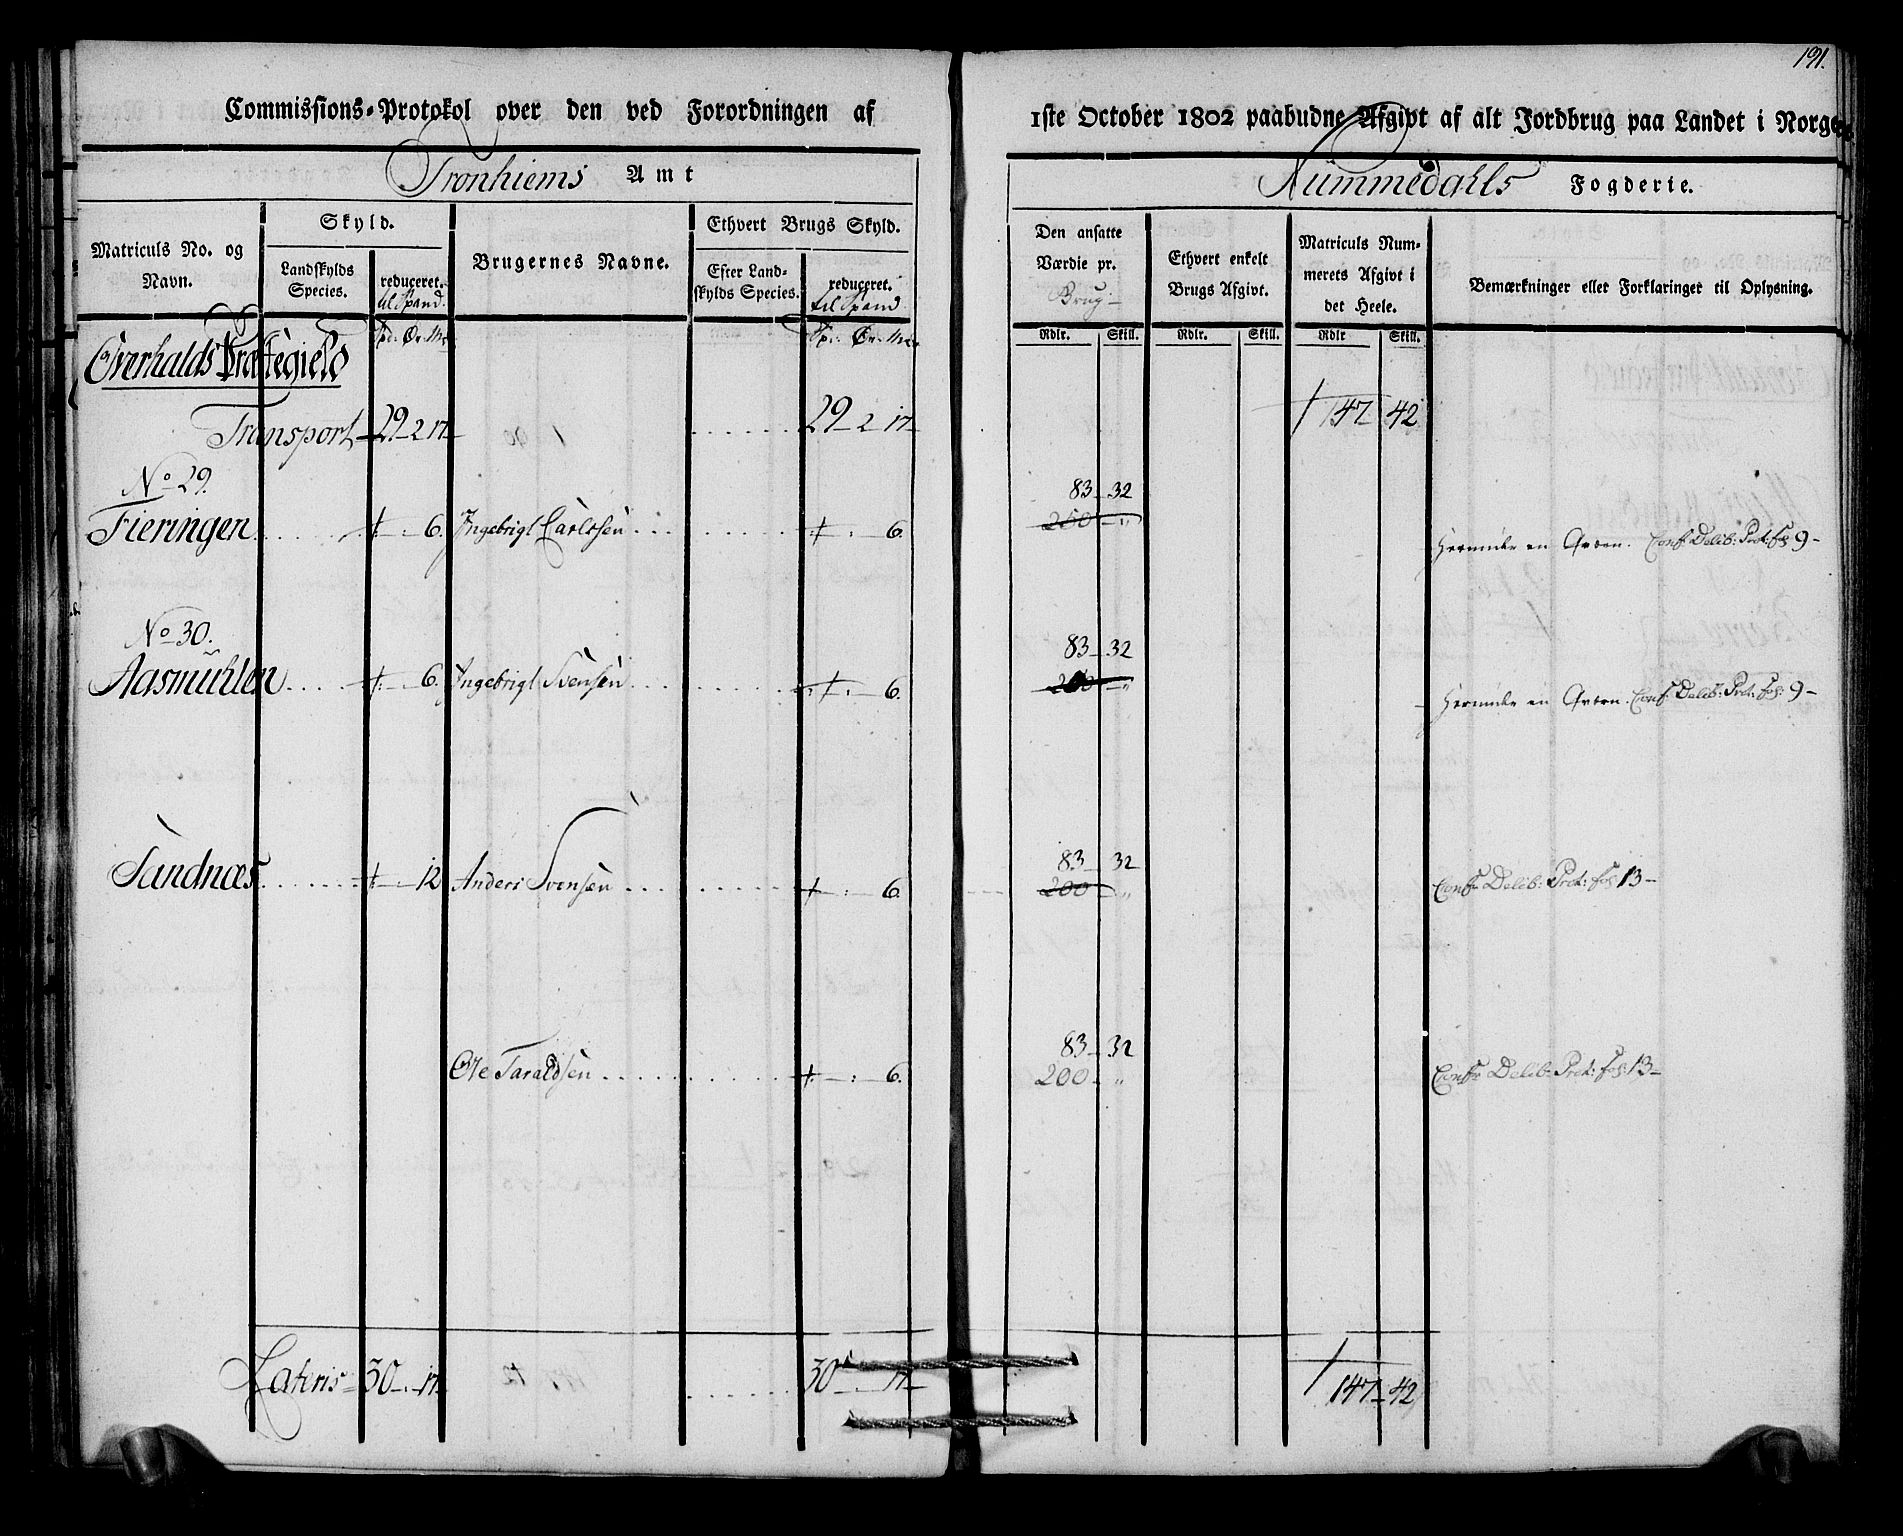 191.
Commissions-Protokol over den ved Forordningen af 1ste October 1802 paabudne Afgivt af alt Jordbrug paa Landet i Norge
Tronhiems Amt
Nummedahls Fogderie.
Matriculs No. og Navn.
Skyld.
Landskylds Species.
reduceret. til Spand.
Brugernes Navne.
Ethvert Brugs Skyld.
Efter Landskylds Species.
reduceret. til Spand
Den ansatte Værdie pr. Brug
Ethvert enkelt Brugs Afgivt.
Matriculs Nummerets Afgivt i det Heele.
Bemærkninger eller Forklaringer til Oplysning.
Rdlr. Skill. Rdlr. Skill. Rdlr Skill.
Overhalds Præstegield
Transport 29 2 17 29 2 17 147 42
No 29.
83 32
Fieringen 6. Ingebrigt Carlssen 6. 250 " Herunder en Qværn. Conf: Delib: Prot: fol 9
No 30.
83 32
Aasmuhlen 6. Ingebrigt Svensen 6. 200 " Herunder en Qværn. Conf: Delib: Prot: fol: 9
83 32
Sandnæs 12 Anders Svensen 6. 200 " Conf: Delib: Prot: fol: 13
83 32
Ole Taraldsen 6. 200 " Conf: Delib: Prot: fol: 13
Lateris 30 17 30 17 147 42